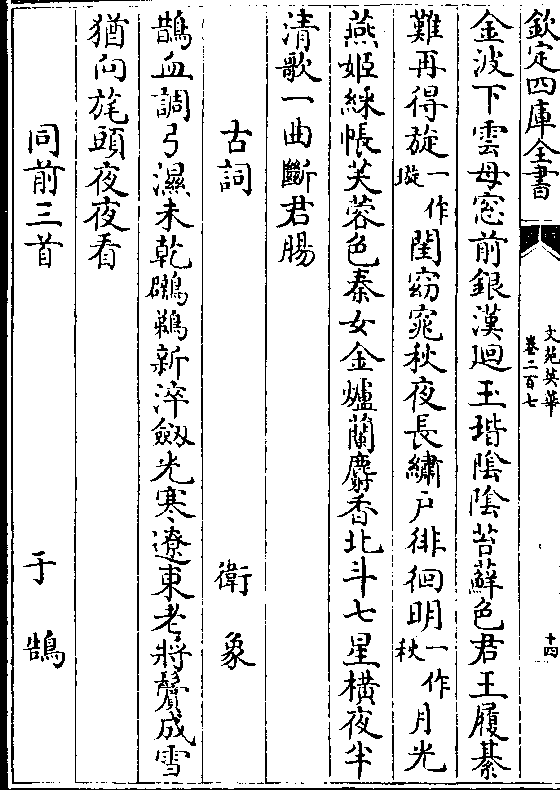 欽定四庫全書
文苑英華
卷二百七
十四
金波下雲母窓前銀漢迴玉堦陰陰苔蘚色君王履綦
難再得旋一作璇閨窈窕秋夜長繡户徘徊明一作秋月光
燕姬綵帳芙蓉色秦女金爐蘭麝香北斗七星橫夜半
清歌一曲斷君腸
古詞 衛象
鵲血調弓濕未乾鸊鵜新淬劔光寒遼東老將鬢成雪
猶向旄頭夜夜看
同前三首 于鵠